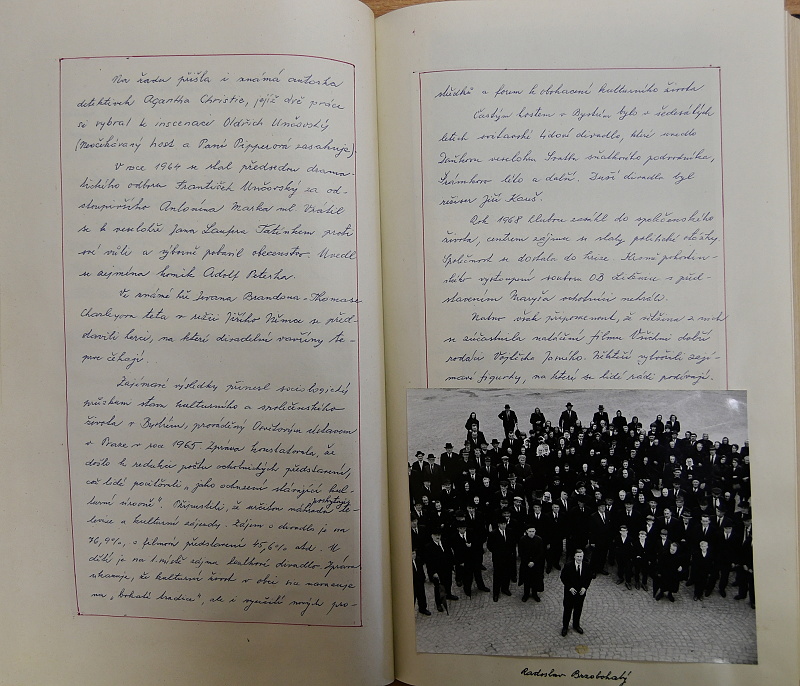 Na řadu přišla i známá autorka
detektivek Agantha Christie, jejíž dvě práce
si vybral k inscenace Oldřich Unčovský
(Neočekávaný host a Paní Pipperová zasahuje).
V roce 1964 se stal předsedou drama-
tického odboru František Unčovský za od-
stoupivšího Antonína Marka ml. Vrátil
se k veselohře Jana Laufra Tatínkem proti
své vůli a výborně pobavil obecenstvo. Uvedl
se zejména komik Adolf Peterka.
Ve známé hře Jevana Brandona-Thomase
Charleyova teta v režii Jiřího Němce se před-
stavili herci, na které divadelní vavříny te-
prve čekají.
Zajímavé výsledky přinesl sociologický
průzkum stavu kulturního a společenského
života v Bystrém, prováděný Osvětovým ústavem
v Praze v roce 1965. Zpráva konstatovala, že
došlo k redukci počtu ochotnických představení,
což lidé pociťovali "jako ochuzení stávající kul-
turní úrovně". Připustili, že určitou náhradu poskytují te-
levize a kulturní zájezdy. Zájem o divadlo je na
76,9%, o filmová představení 45,6% atd. U
dětí je na 1. místě zájmu loutkové divadlo. Zpráva
ukazuje, že kulturní život v obci na navazuje
na "bohaté tradice", ale i využití nových pro-
středků a forem k obohacení kulturního života
Častým hostem v Bystrém bylo v šedesátých
letech svitavské Lidové divadlo, které uvedlo
Daňkovu veselohru Svatba sňatkového podvodníka,
Šrámkovo Léto a další. Duší divadla byl
režisér Jiří Kauš.
Rok 1968 hluboce zasáhl do společenského
života, centrem zájmu se staly politické otázky.
Společnost se dostala do krize. Kromě pohostin-
ského vystoupení souboru OB Letovice s před-
stavením Maryša ochotníci nehráli.
Nutno však připomenout, že většina z nich
se zúčastnila natáčení filmu Všichni dobří
rodáci Vojtěcha Jasného. Někteří vytvořili zají-
mavé figurky, na které se lidé rádi podívají.
Radoslav Brzobohatý